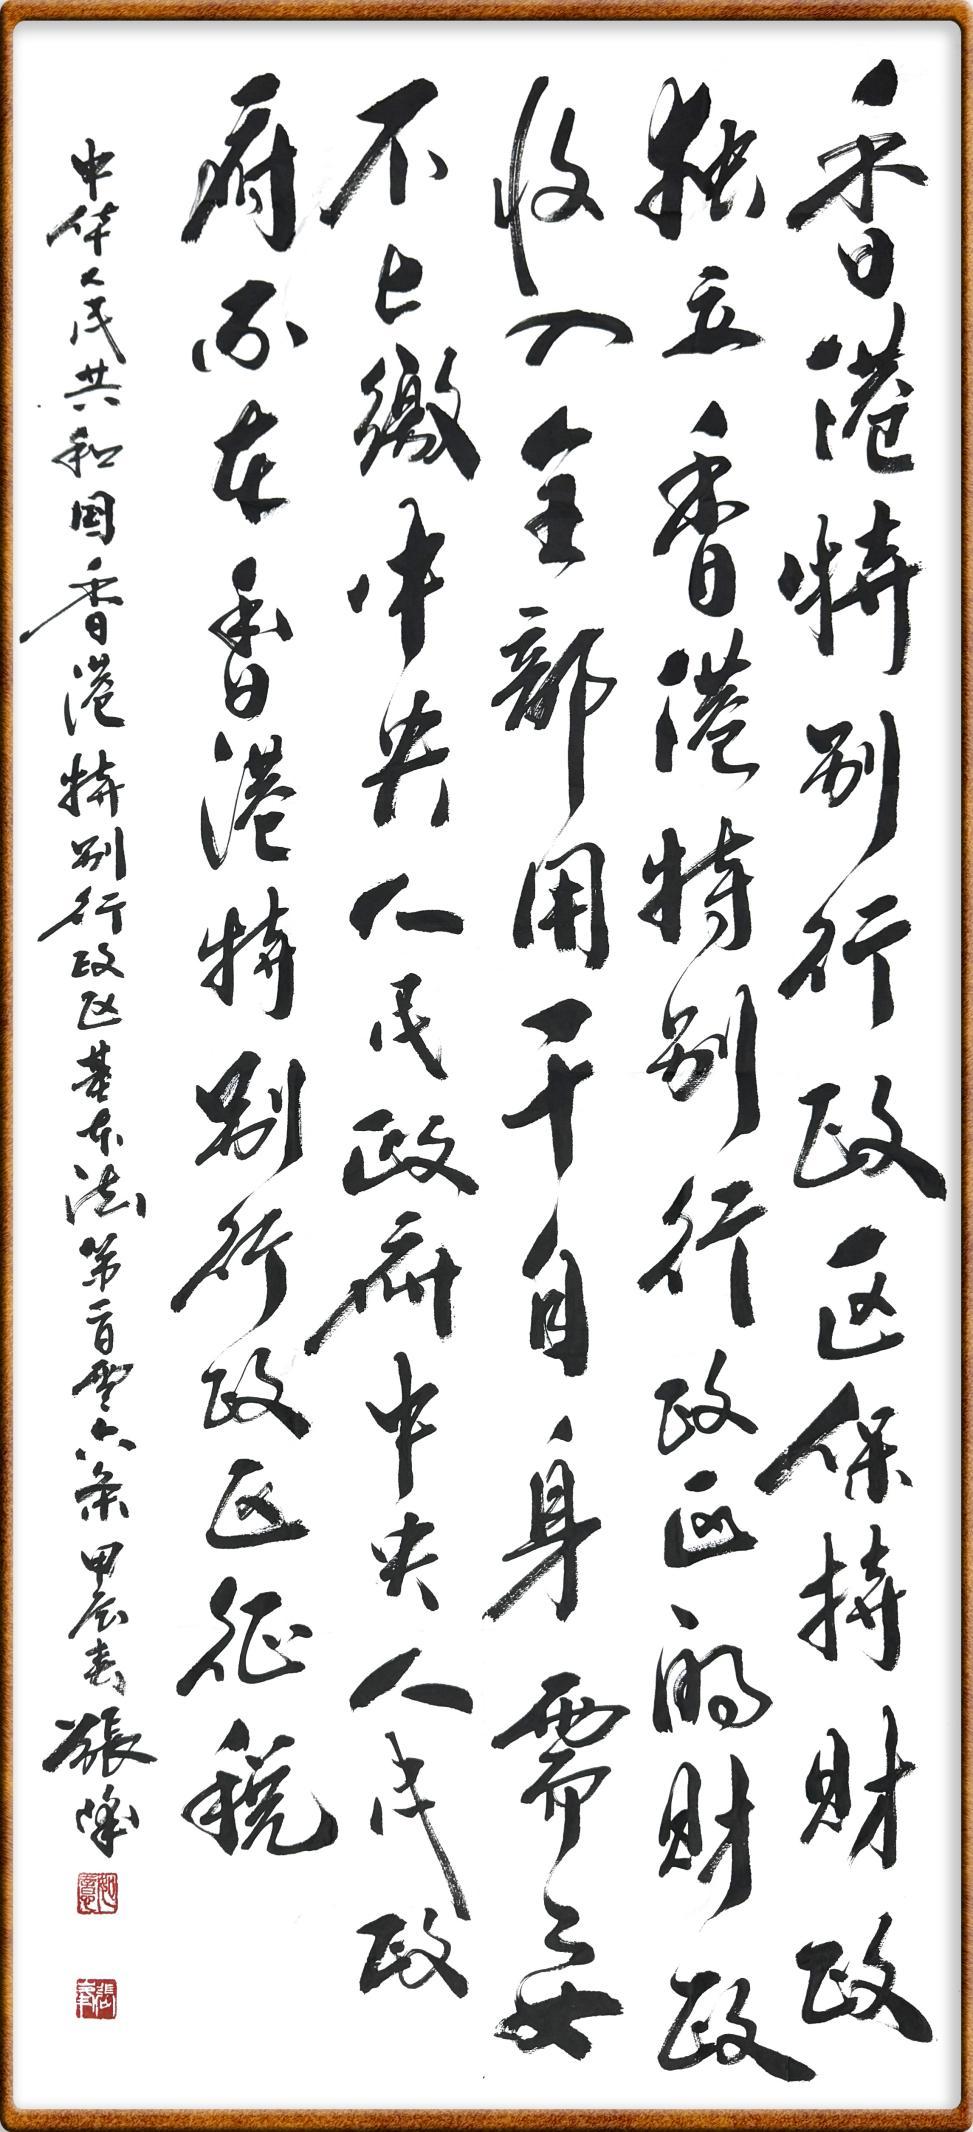 香港特别行政区保持财政
独立香港特别行政区的财政
收入全部用于自身需要
不上缴中央人民政府中央人民政
府不在香港特别行政区征税
中华人民共和国香港特别行政区基本法第一百零六条 甲辰春 張峰